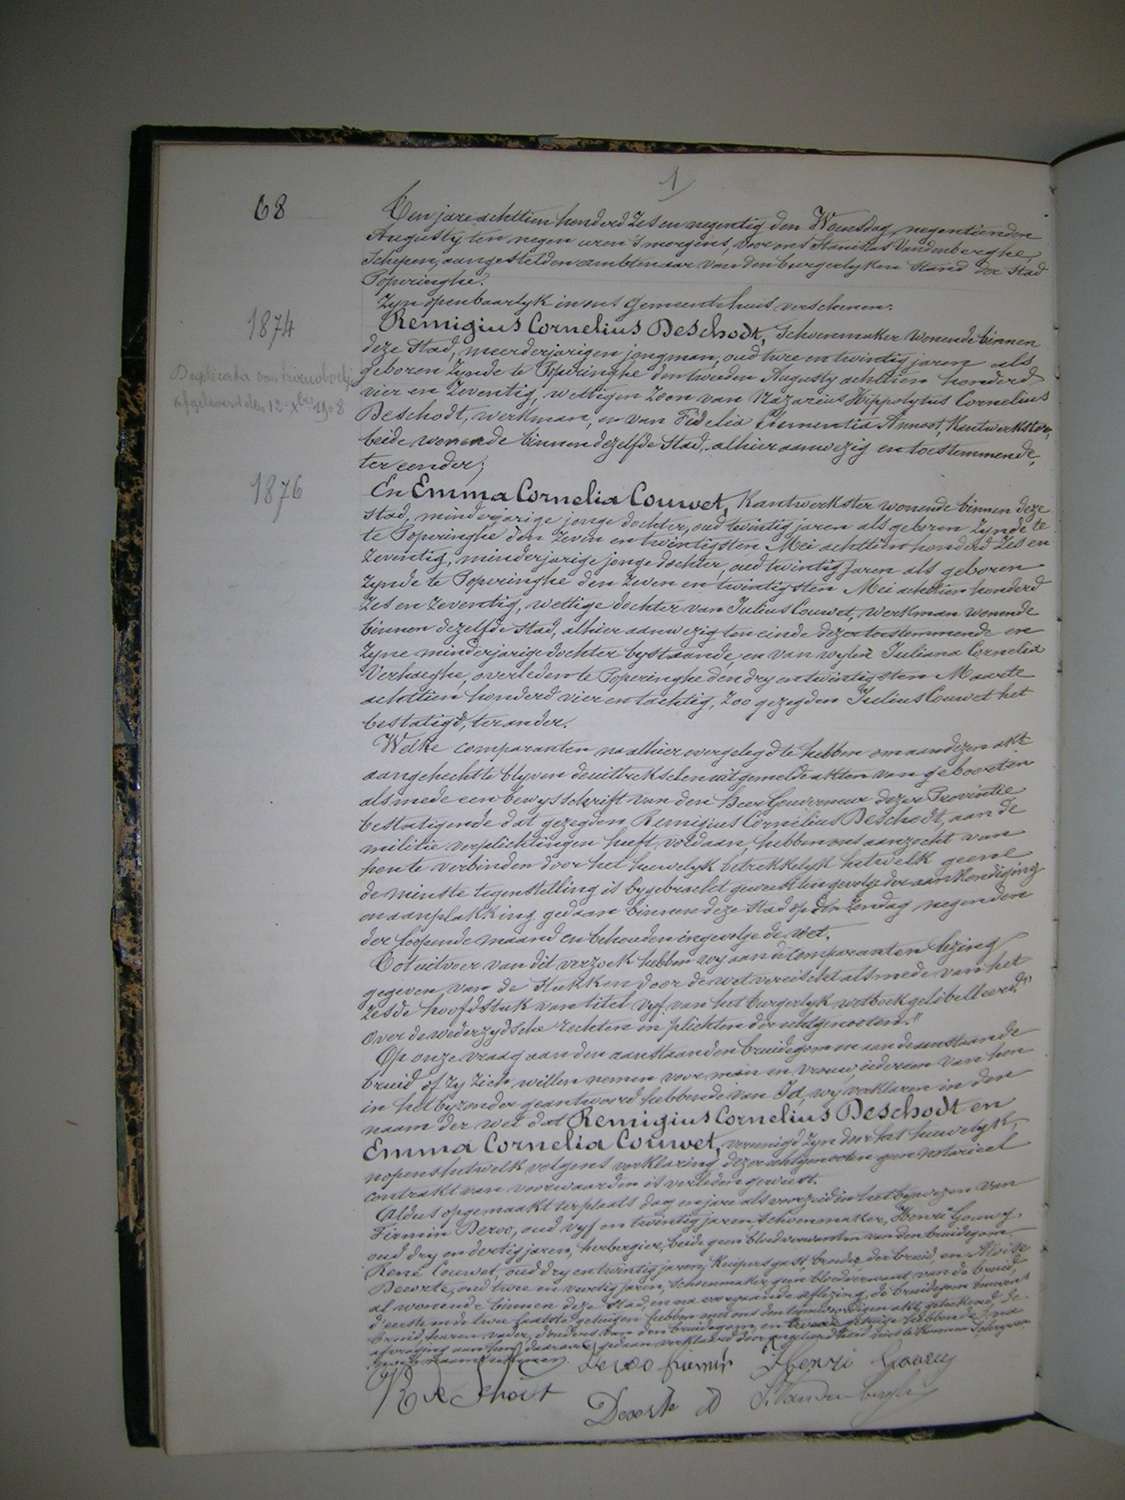 1
68
Ten jare achttien honderd zes en negentig den Woensdag, negentienden
Augusty ten negen uren 's morgens, voor ons Stanislas Vandenberghe,
Schepen, aangestelden ambtenaar van den burgerlyken Stand der Stad
Poperinghe.
Zyn openbaarlyk in ons Gemeentehuis verschenen:
1874
Remigius Cornelius Deschodt, Schoenmaker wonende binnen
deze Stad, meerderjarigen jongman, oud twee en twintig jaren als
geboren zynde te Poperinghe den tweeden Augusty achttien honderd
vier en Zeventig, wettigen Zoon van Nazarius Hippolytus Cornelius
Deschodt, werkman, en van Fidelia Clementia Annoot, Kantwerkster,
beide wonende binnen dezelfde Stad, alhier aanwezig en toestemmende,
ter eender;
Duplicata van trouwboekje
afgeleverd den 12 Xber 1908
1876
En Emma Cornelia Couwet, Kantwerkster wonende binnen deze
Stad, minderjarige jonge dochter, oud twintig jaren als geboren zynde te
te Poperinghe den zeven en twintigsten Mei achttien honderd zes en
Zeventig, minderjarige jonge dochter, oud twintig jaren als geboren
zynde te Poperinghe den zeven en twintigsten Mei achttien honderd
zes en zeventig, wettige dochter van Julius Couwet, werkman wonende
binnen dezelfde stad, alhier aanwezig ten einde dezer toestemmende en
zyne minderjarige dochter bystaande, en van wylen Juliana Cornelia
Verhaeghe, overleden te Poperinghe den dry en twintigsten Maarte
achttien honderd vier en tachtig, zoo gezegden Julius Couwet het
bestatigd, ter ander.
Welke comparanten na alhier overgelegd te hebben om aan dezen akt
aangehecht te blyven de uittrekselen uit gemelde akten van geboorten
alsmede een bewysschrift van den Heer Gouverneur dezer Provintie
bestatigende dat gezegden Remigius Cornelius Deschodt, aan de
militie verplichtingen heeft voldaan, hebben ons aanzocht van
hen te verbinden door het huwelyk betrekkelyk hetwelk geene
de minste tegenstelling is bygebracht geweest ten gevolge der aankondiging
en aanplakking gedaan binnen deze Stad op den Zondag negenden
der loopende maand en behouden ingevolge de wet.
Tot uitvoer van dit verzoek hebben wy aan de comparanten lezing
gegeven van de stukken door de wet vereischt alsmede van het
zesde hoofdstuk van titel vyf van het burgerlyk wetboek gelibelleerd
over de wederzydsche rechten en plichten der echtgenooten."
Op onze vraag aan den aanstaanden bruidegom en aan de aanstaande
bruid of zy zich willen nemen voor man en vrouw, iedereen van hen
in het byzonder geantwoord hebbende van Ja, wy verklaren in den
naam der wet dat Remigius Cornelius Deschodt en
Emma Cornelia Couwet, vereenigd zyn door het huwelyk,
nopens hetwelk volgens verklaring dezer echtgenooten geen notarieel
contrakt van voorwaarden is verleden geweest.
Aldus opgemaakt ter plaats dag en jare als voorzeid in het bywezen van
Firmin Devoo, oud vyf en twintig jaren, Schoenmaker, Henri Gouwy
oud dry en dertig jaren, herbergier, beide geen bloedverwanten van den bruidegom
René Couwet, oud dry en twintig jaren, Kuipersgast, broeder der bruid, en
oud twee en veertig jaren, Schoenmaker, geen bloedverwant van de bruid,
al wonende binnen deze Stad, en na voorgaande aflezing, de bruidegom
Devoo firmin Henri Gouwy
R Deschodt
S. Vandenberghe